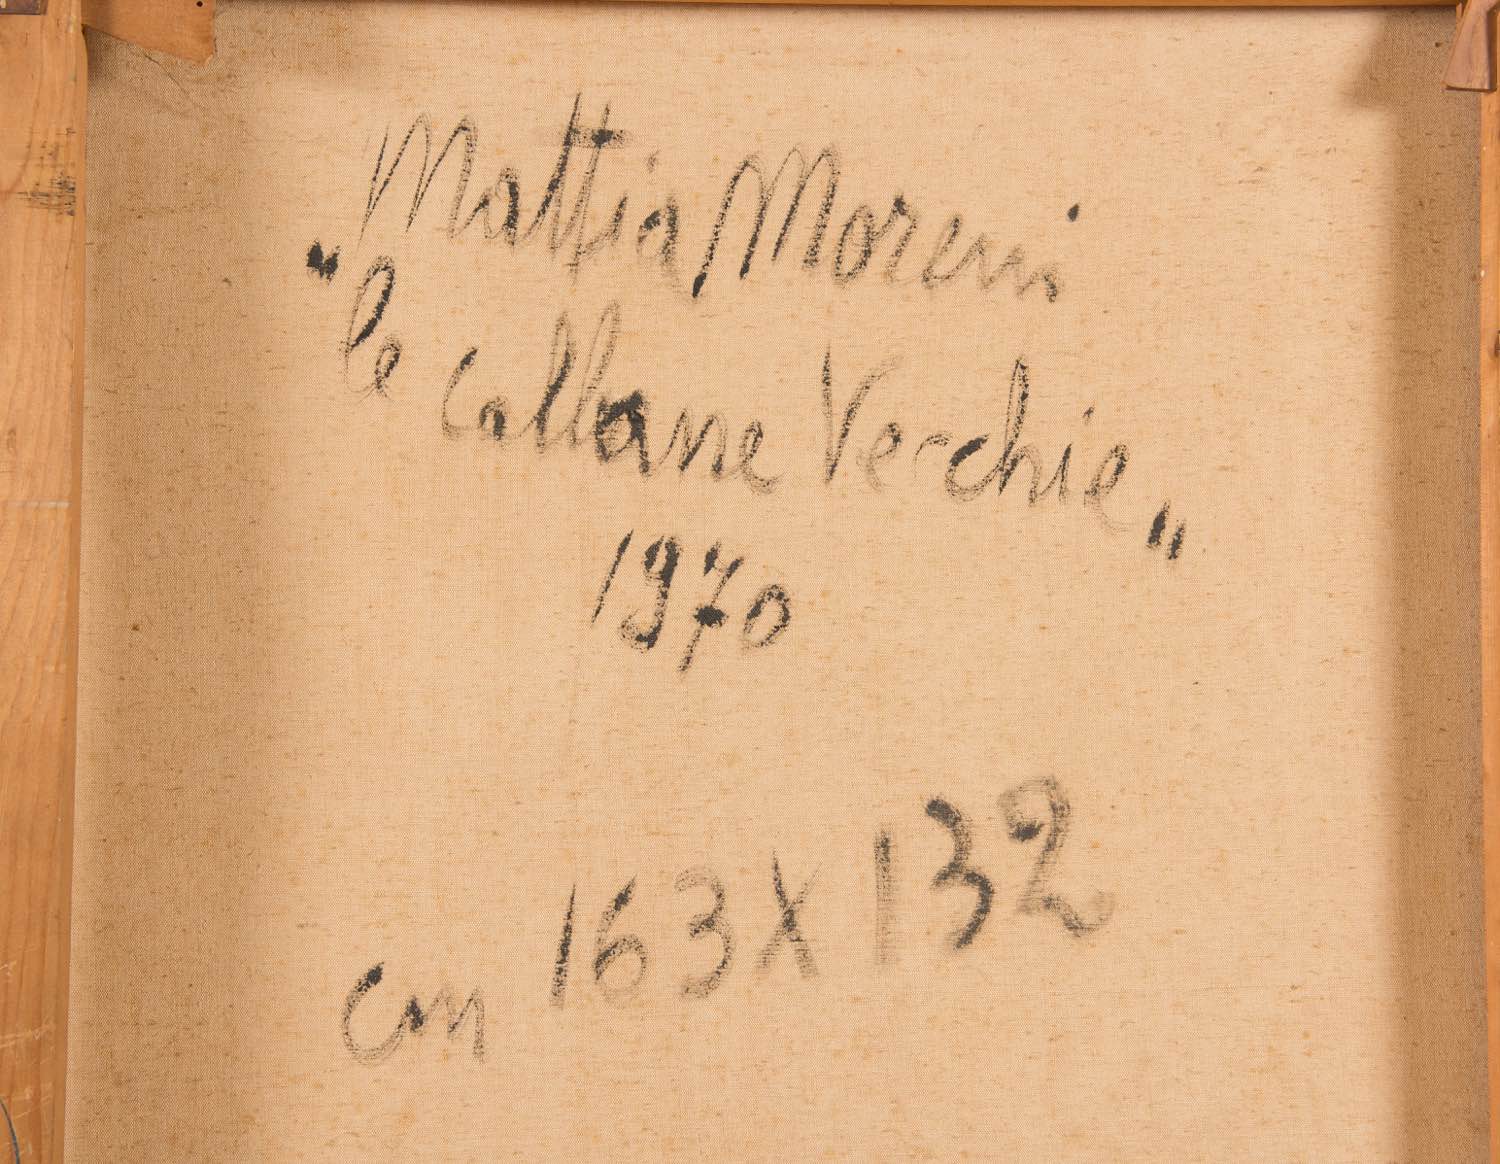 Mattia Moreni
"le collane Vecchie"
1970
cm 163 X 132